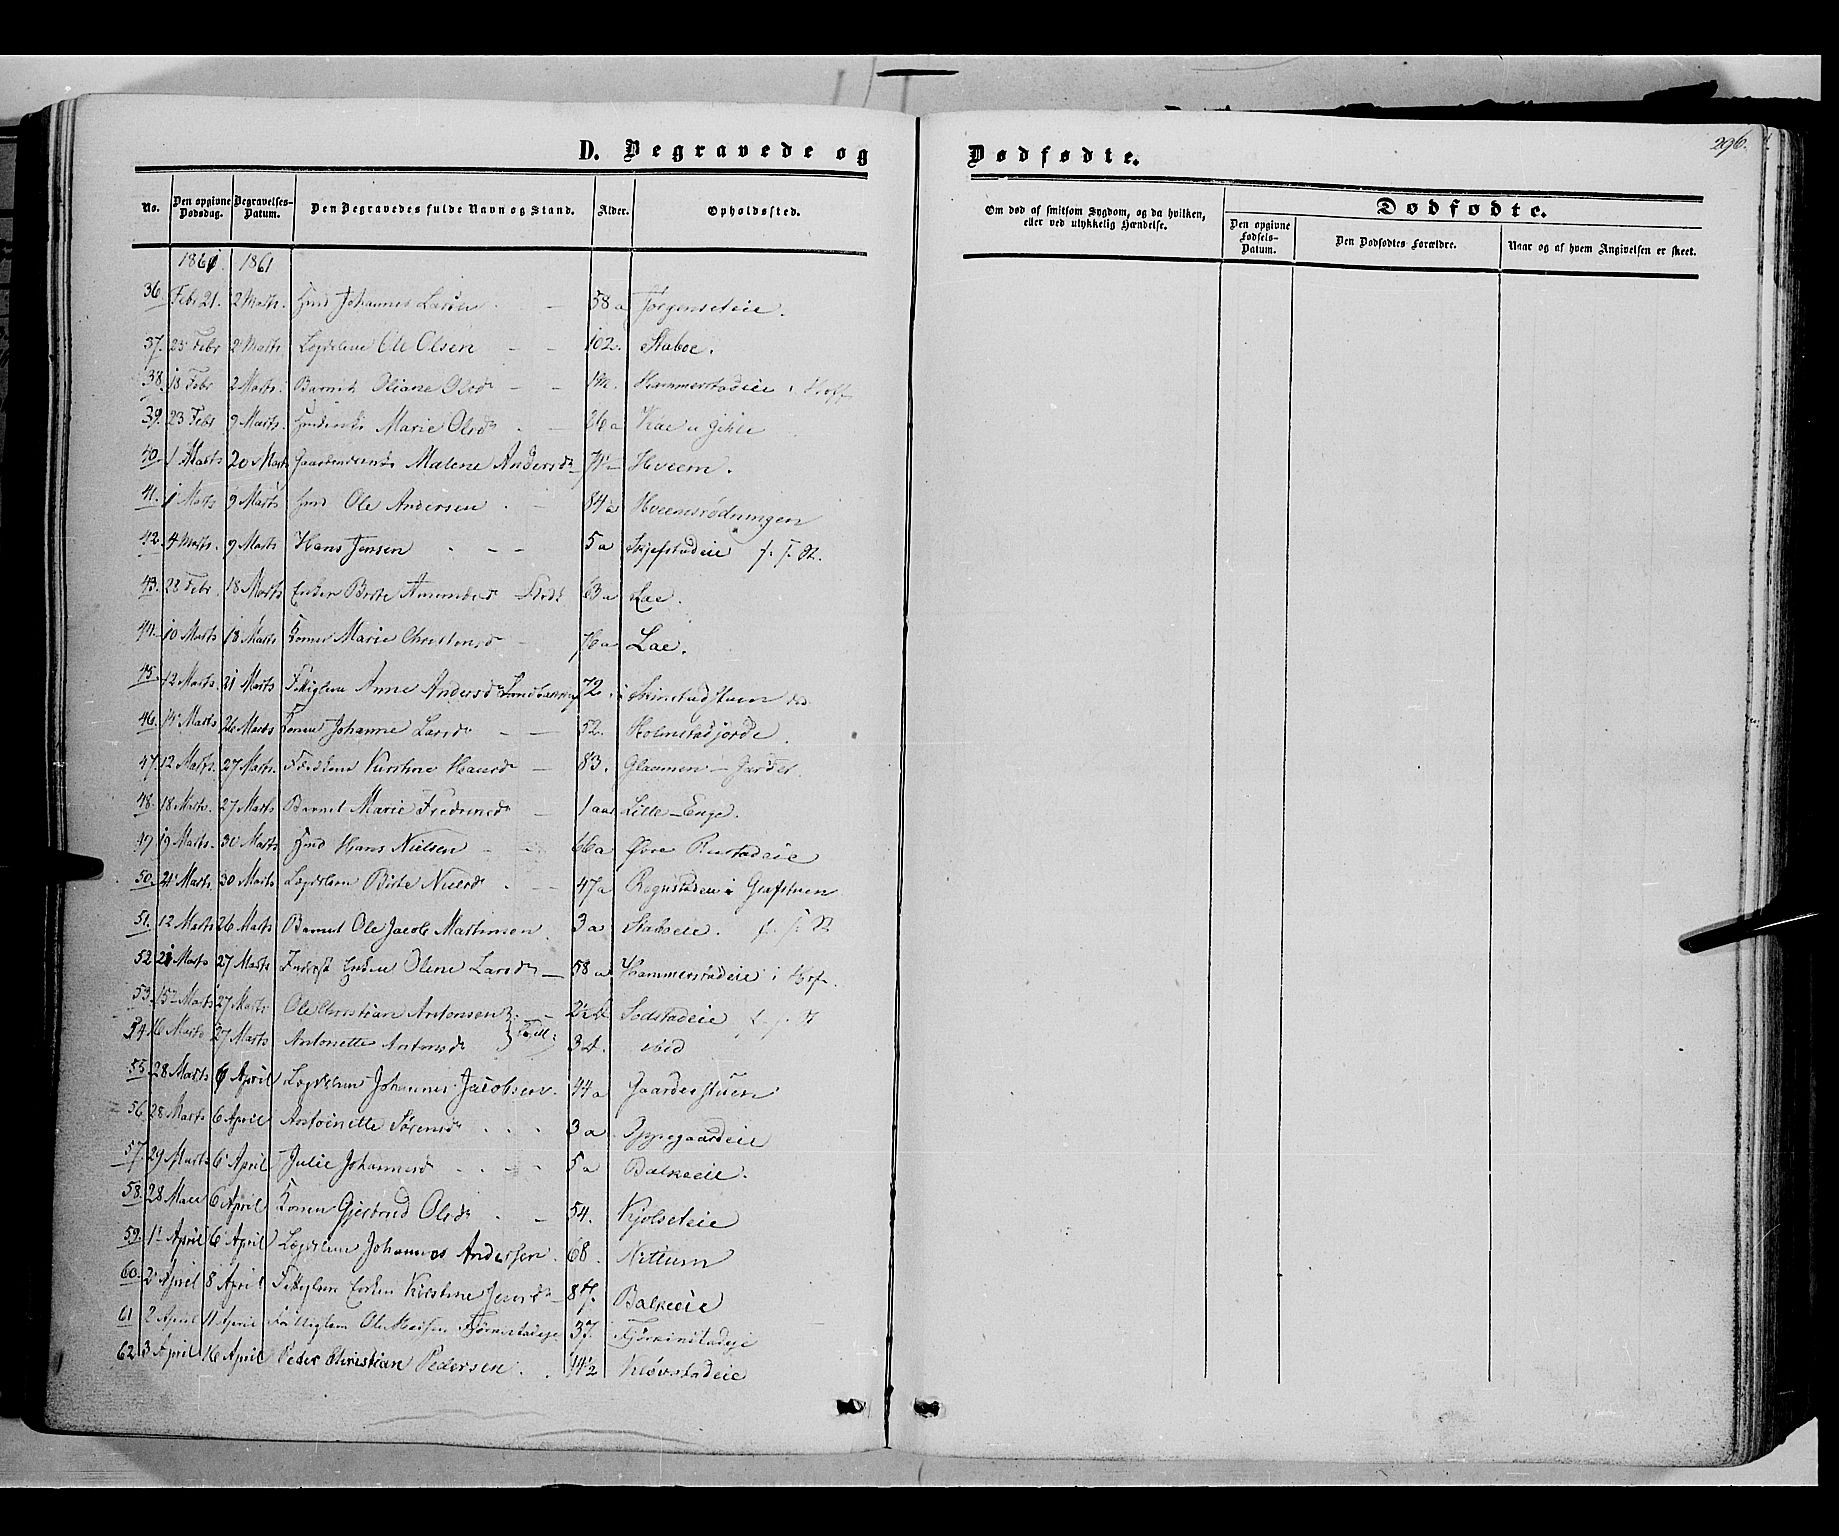 D. Begravede og Dødfødte.
296.
No. Den opgivne Dødsdag. Begravelses-Datum. Den Begravedes fulde Navn og Stand. Alder. Opholdssted. Om død af smitsom Sygdom, og da hvilken, eller ved ulykkelig Hændelse. Dødfødte.
Den opgivne Fødsels-Datum. Den Dødfødtes Forældre. Naar og af hvem Angivelsen er skeet.
1861. 1861
36 Febr 21. 2 Marts. Johannes Larsen 58 a Jørgenseteie.
37. 25 Febr 2 Marts Lægdslem Ole Olsen 102. Staboe.
38. 18 Febr 2 Marts. Barnet Oliane Olsd 1 M. Hammerstadeie i Hoff
39. 23 Febr 9 Marts. Marie Olsd 26 a
40. 1 Marts 20 Marts Malene Andersd Hveem.
41. 1 Marts 9 Marts Ole Andersen 84 a Hveemsrødningen
42. 4 Marts. 9 Marts Hans Jensen 5 a Skjefstadeie f. J. St.
43. 28 Febr 18 Marts Enken Berte 63 a Lae.
44. 10 Marts 18 Marts Konen Marie 76 a Lae.
45. 12 Marts. 21 Marts Fattiglem Anne Andersd 72.
46. 14 Marts 26 Marts Konen Johanne Larsd 52. Holmstadjorde.
47 12 Marts. 27 Marts. Kirstine Hansd 83. Glaamen
48. 18 Marts. 27 Marts Barnet Marie 1 aar Lille-Enge.
49 19 Marts. 30 Marts Hans Nielsen 66 a Øvre Rustadeie
50. 21 Marts 30 Marts Lægdslem Berte 47 a Rognstadeie i
51. 12 Marts 26 Marts Barnet Ole Jacob Martinsen. 3 a Staboeie. f. J. St
52 21 Marts 27 Marts Enken Olene Larsd 58 a Hammerstadeie i Hof.
53. 15 Marts 27 Marts Ole Christian Antonsen
54 16 Marts 27 Marts Antonette Antonsd ibid
55. 28 Marts 6 April Lægdslem Johannes Jacobsen. 44 a Gaarderstuen
56. 28 Marts 6 April Antoinette Sørensd 3 a Oppegaardeie
57. 29 Marts 6 April Julie Johannesd 5 a Balkeeie.
58. 28 6 April Konen Gjertrud Olsd 54. Kjølseteie
59. 1 April 6 April Lægdslem Johannes Andersen. 68. Nettum
60. 2 April 8 April Fattiglem Enken Kirstine Balkeeie
61 2 April 11 April Fattiglem Ole 37.
62. 3 April 16 April Peder Christian Pedersen. Kløvstadeie